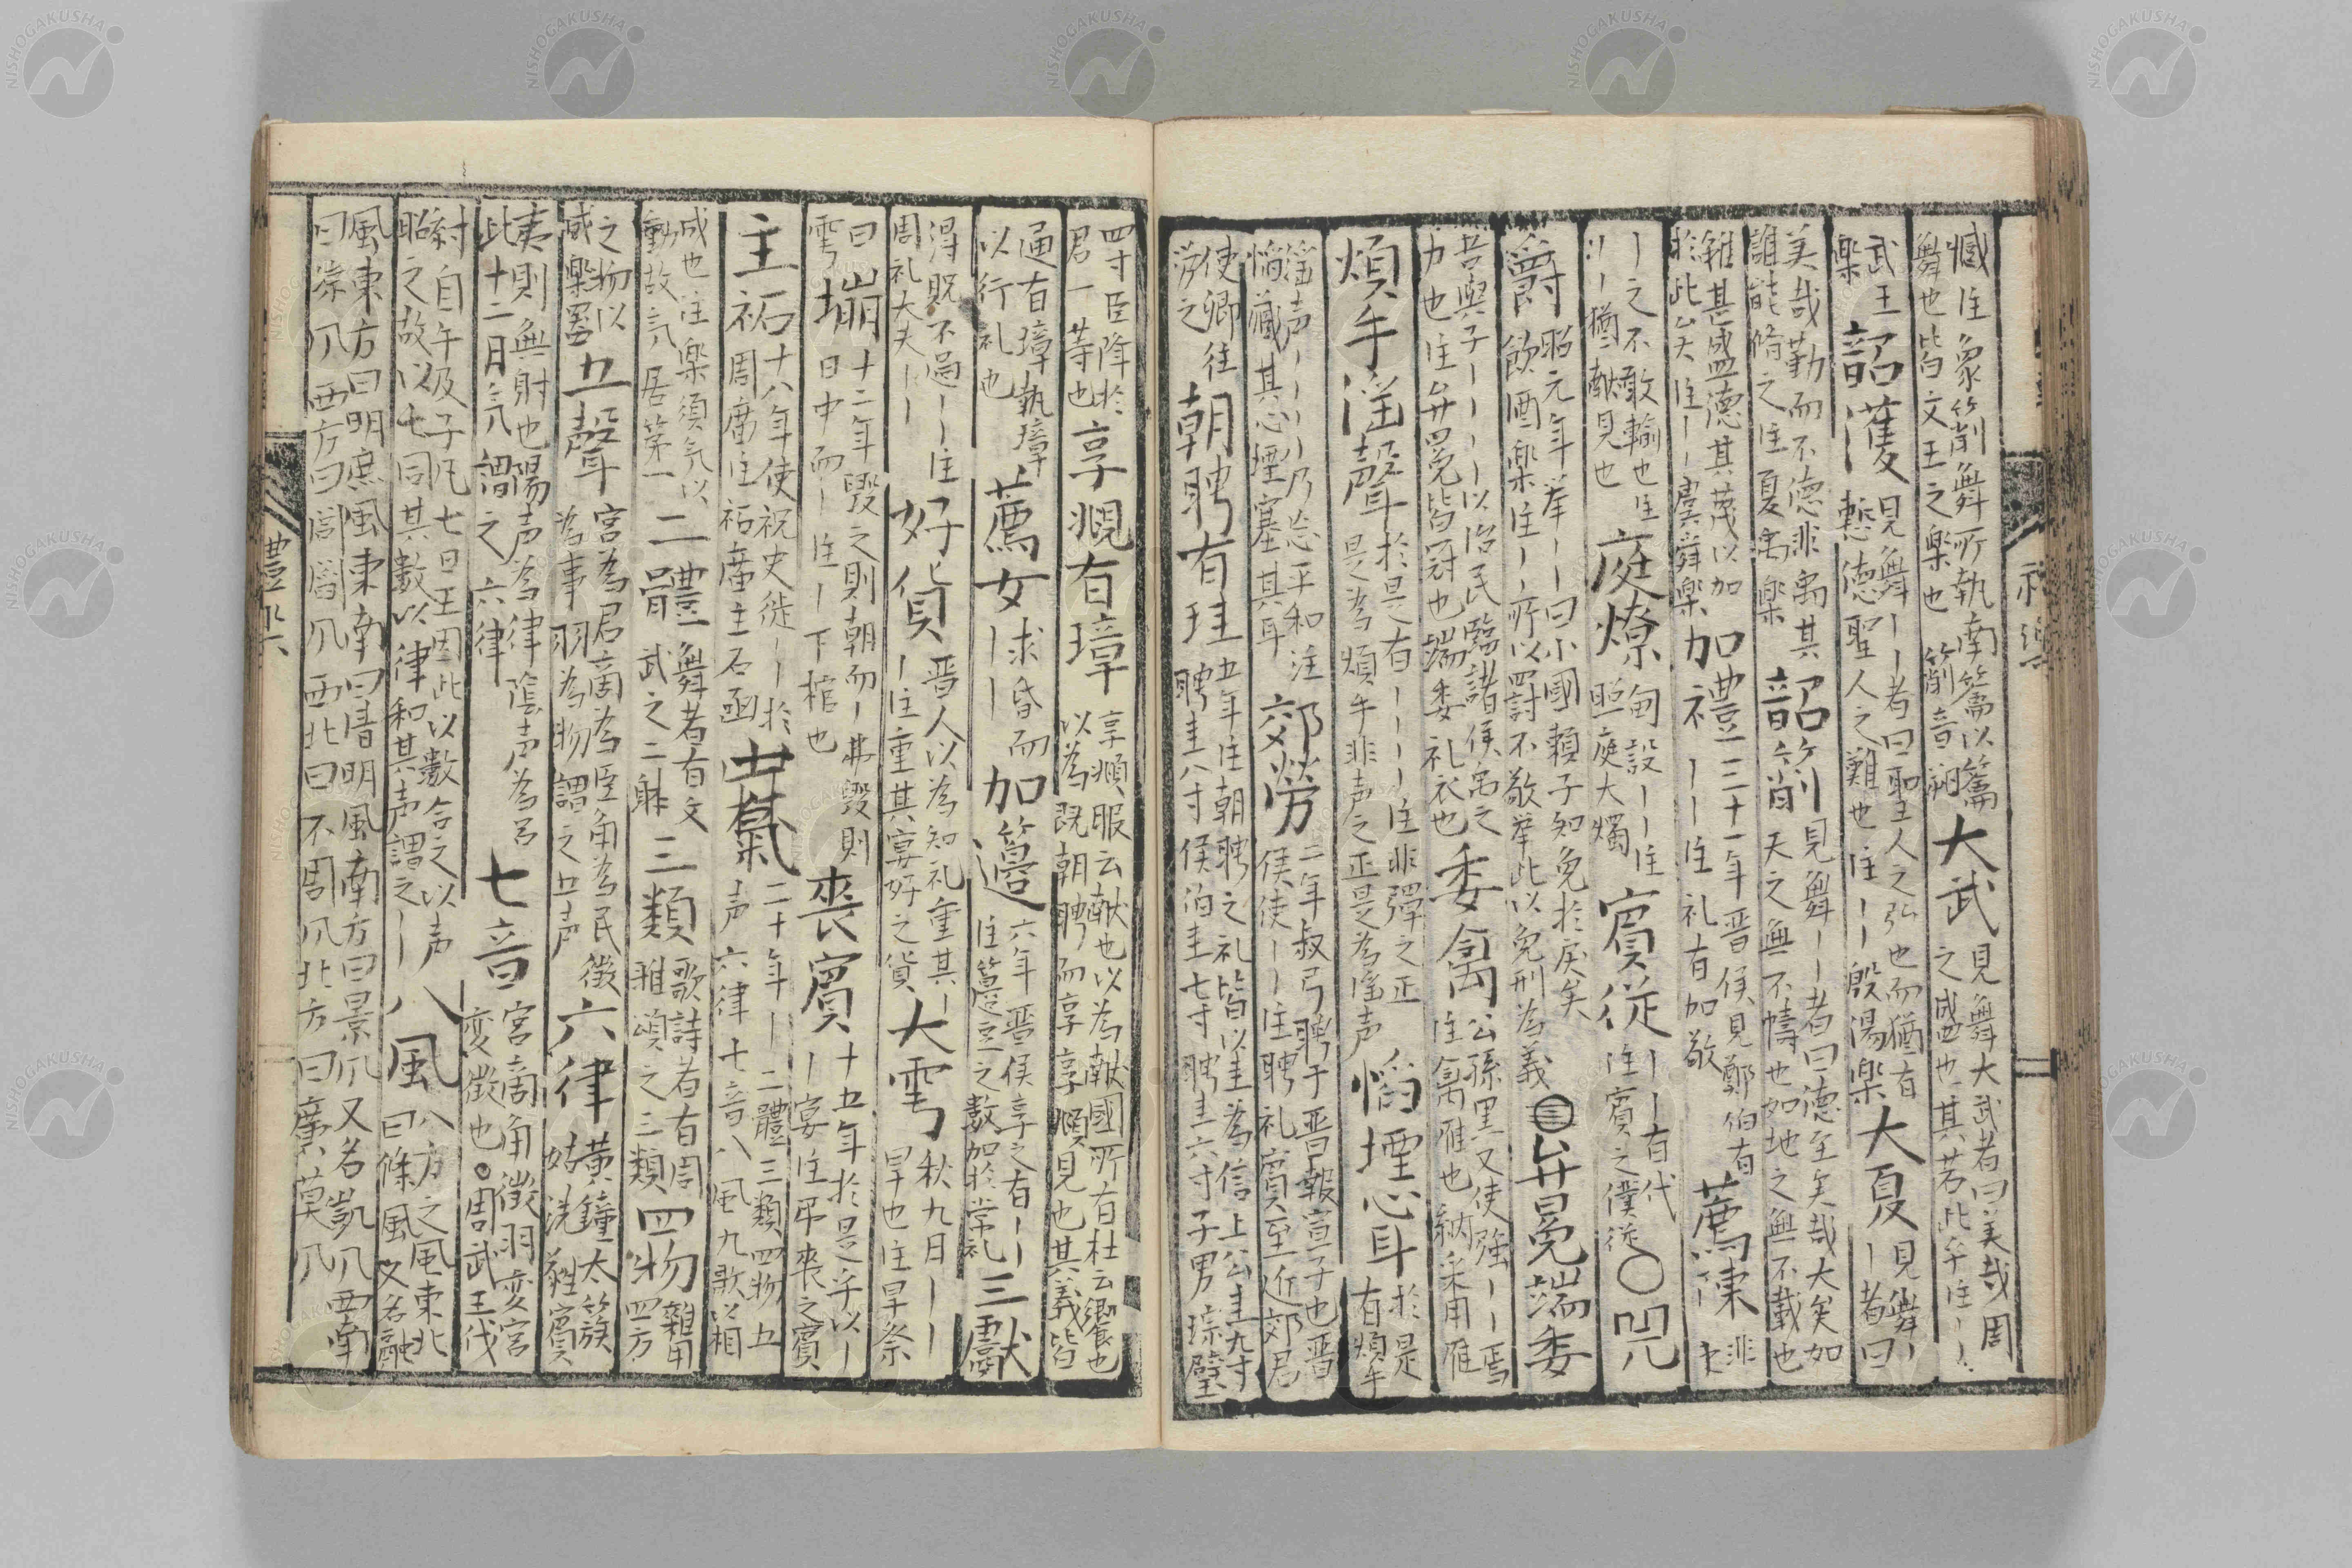 憾注象箾舞所執南籥以籥
舞也皆文王之楽也 箾音朔
大武
見舞大武者曰美哉周
之盛也其若此乎注丨丨
武王
楽
韶濩
見舞丨丨者曰聖人之弘也而猶有
慙徳聖人之難也注丨丨殷湯楽
大夏
見舞丨
丨者曰
美哉勤而不徳非禹其
誰能脩之注夏禹楽
韶箾
見舞丨丨者曰徳至矣哉大矣如
天之無不幬也如地之無不載也
雖甚盛徳其蔑以加
於此矣注丨丨虞舜楽
加禮
三十一年晋侯見鄭伯有
丨丨注礼有加敬
薦陳
非
丨之不敢輸也注
丨丨猶献見也
庭燎
甸設丨丨注
照庭大燭
賓従
丨丨有代
注賓之僕従
〇
兕
爵
昭元年挙丨曰小國頼子知免於戻矣
飲酒楽注丨丨所以罸不敬挙此以免刑為義
弁冕端委
吾與子丨丨丨以治民臨諸侯禹之
力也注弁冕皆冠也端委礼衣也
委禽
公孫黒又使強丨丨焉
注禽雁也納采用雁
煩手淫聲
於是有丨丨丨丨注非彈之正
是為煩手非声之正是為淫声
慆堙心耳
於是
有煩手
淫声丨丨丨丨乃忘平和注
慆藏其心堙塞其耳
郊勞
二年叔弓聘于晋報宣子也晋
侯使丨丨注聘礼賓至近郊君
使卿往
労之
朝聘有珪
五年注朝聘之礼皆以圭為信上公圭九寸
聘圭八寸侯伯圭七寸聘圭六寸子男琮璧
四寸臣降於
君一等也
享覜有璋
享覜服云献也以為献國所有杜云饗也
以為既朝聘而享享覜見也其義皆
通有璋執璋
以行礼也
薦女
丨求昏而
丨丨
加籩
六年晋侯享之有丨丨
注籩豆之数加於常礼
三獻
得貺不過丨丨注
周礼大夫丨丨
好貨
晋人以為知礼重其丨
丨注重其宴好之貨
大雩
秋九月丨丨
旱也注旱祭
曰
雩
塴
十二年毀之則朝而丨弗毀則
日中而丨注丨下棺也
喪賓
十五年於是乎以丨
丨宴注弔喪之賓
主祏
十八年使祝史徙丨丨於
周庿注祏庿主石函
一氣
二十年丨二體三類四物五
声六律七音八風九歌以相
成也注楽須気以
動故気居第一
二體
舞者有文
武之二躰
三類
歌詩者有周
雅頌之三類
四物
雜用
四方
之物以
成楽噐
五聲
宮為君商為臣角為民徴
為事羽為物謂之五声
六律
黄鐘太簇
姑洗蕤賓
夷則無射也陽声為律陰声為呂
此十二月気謂之六律
七音
宮商角徴羽変宮
変徴也○周武王伐
紂自午及子凡七日王因此以数合之以声
昭之故以七同其數以律和其声謂之丨丨
八風
八方之風東北
曰條風又名融
風東方曰明庶風東南曰清明風南方曰景凨又名凱凨西南
曰涼凨西方曰閶闔凨西北曰不周凨北方曰廣莫凨